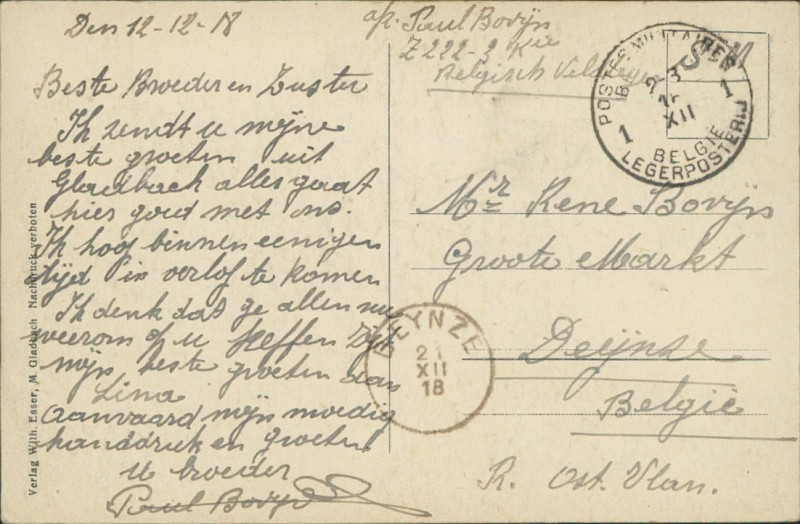 Den 12-12-18
Beste Broeder en Zuster
Ik zendt u mijne
beste groeten uit
Gladbach alles gaat
hier goud met ons.
Ik hoop binnen eenigen
tijd in verlof te komen
Ik denk dat ge allen nu
weerom op u effen zijt
mijn beste groeten aan
Lina
Aanvaard mijn moedig
handdruk en groeten
U broeder
Paul Bovijn
Verlag Wilh. Esser, M. Gladbach Nachdruck verboten
afz. Paul Bovijn
Z 222-2 Kie
Belgisch
S M
POSTES MILITAIRES
BELGIE
LEGERPOSTERIJ
1 1
XII
Mr Rene Bovijn
Groote Markt
Deijnze
België
R. Ost. Vlan.
DEYNZE
21
XII
18